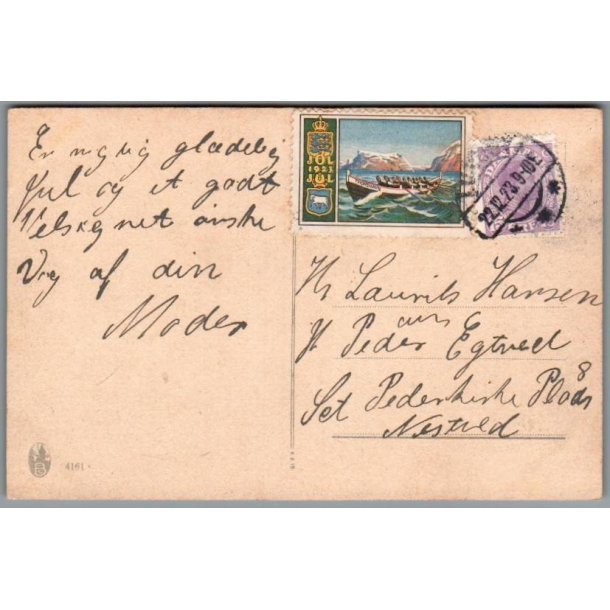 En rigtig glædelig
Jul og et godt
Velsignet ønske
Deg af din
Moder
JOL
1923
JOL
22.12.23 9-10E
Hr Laurits Hansen
Hr Peder Egtved
Sct Pederkirke Plads 8
Nestved
4161